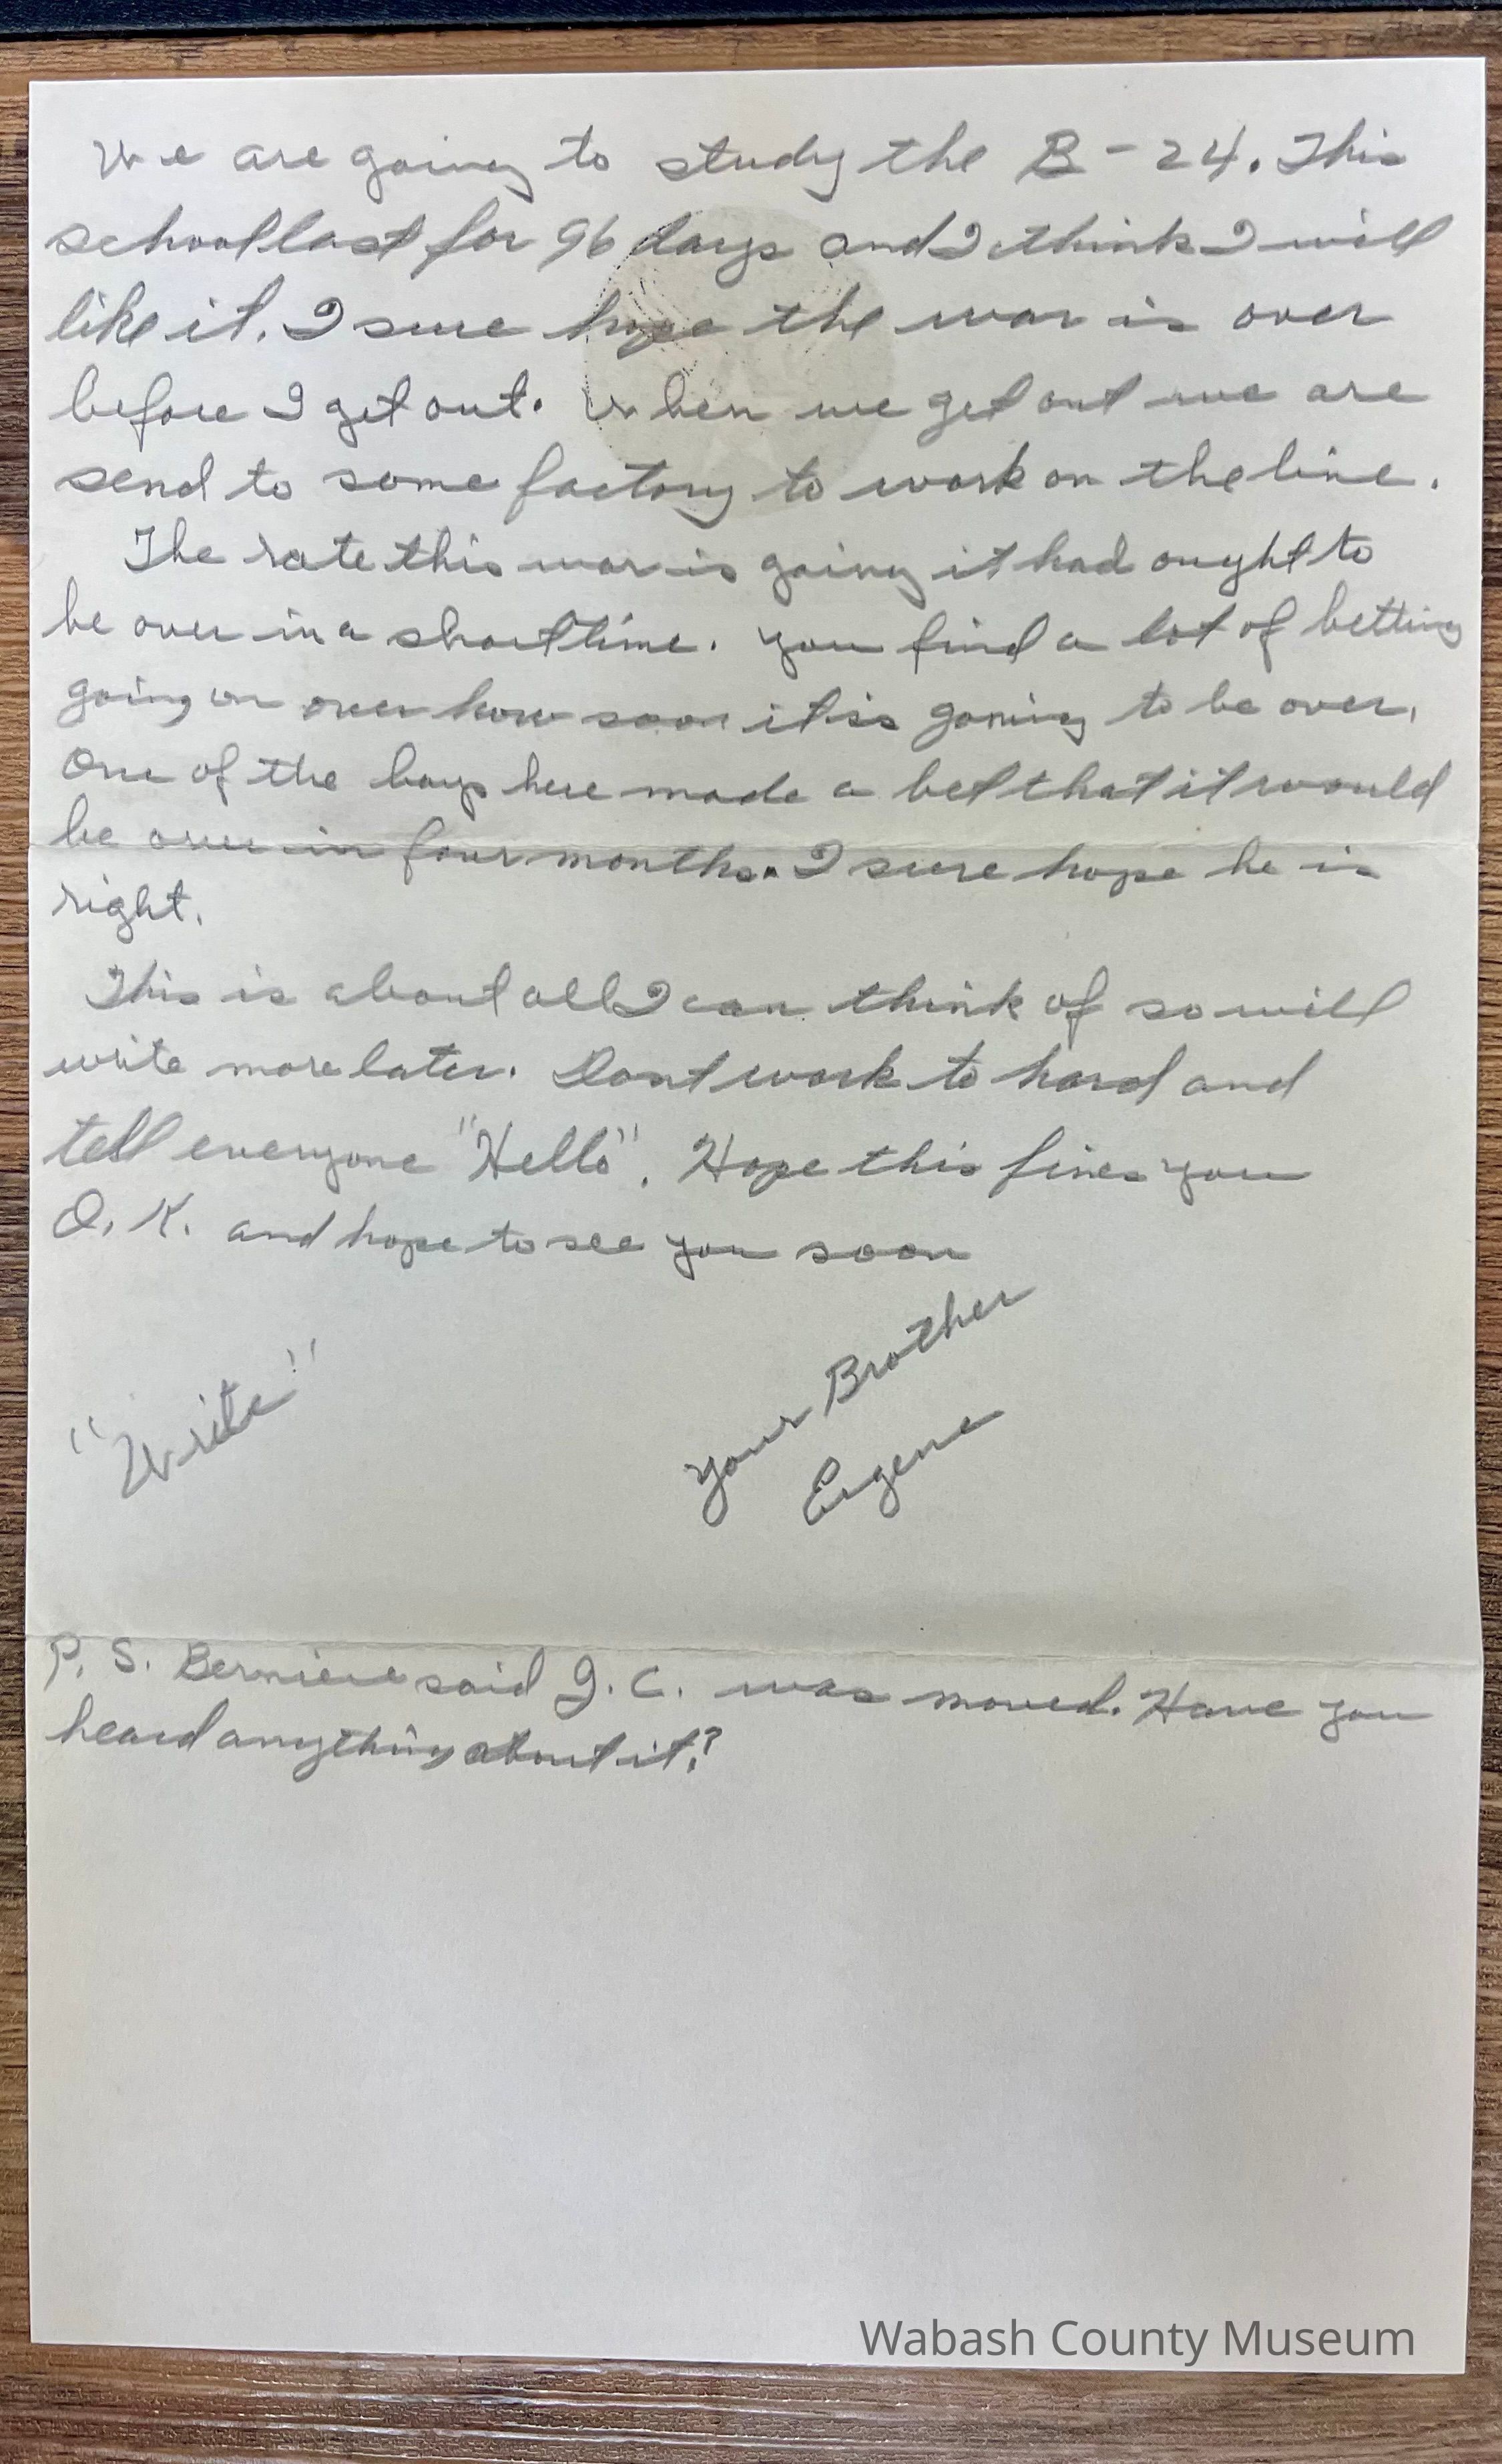 We are going to study the B-24. This
school last for 96 days and I think I will
like it. I sure hope the war is over
before I get out. When we get out we are
send to some factory to work on the line.
The rate this war is going it had ought to
be over in a short time. you find a lot of betting
going on over how soon it is goning to be over.
One of the boys here made a bet that it would
be over in four months. I sure hope he is
right.
This is about all I can think of so will
write more later. Dont work to hard and
tell everyone "Hello". Hope this fines you
O.K. and hope to see you soon
your Brother
"Write"
Eugene
P.S. said J.C. was moved. Have you
heard anything about it?
Wabash County Museum